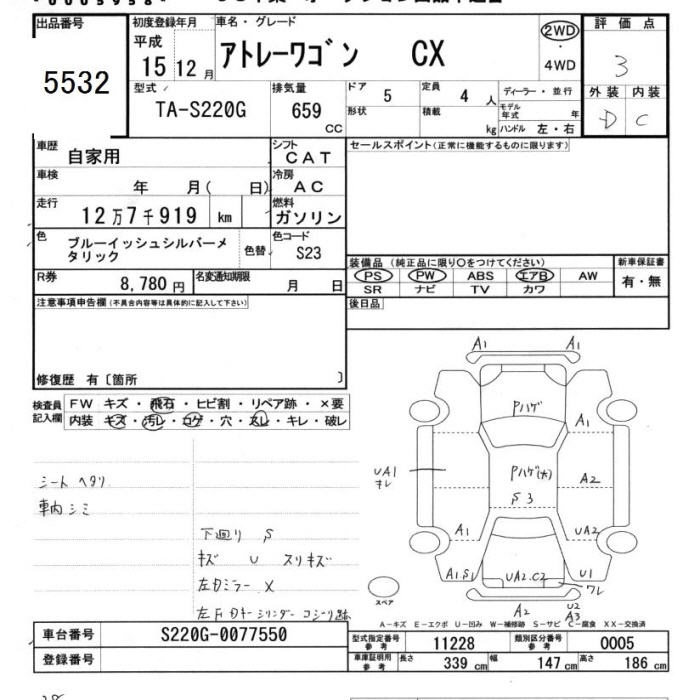 出品番号
5532
初度登録年月
平成
15 12 月
車名・グレード
アトレーワゴン CX
2WD
・
4WD
評価点
3
外装 内装
D C
型式
TA-S220G
排気量
659
CC
ドア
5
形状
定員
4 人
積載
kg
ディーラー・並行
モデル年式
年
ハンドル 左・右
車歴
自家用
シフト
CAT
車検
年 月( 日)
冷房
AC
走行
12万7千919 km
燃料
ガソリン
色
ブルーイッシュシルバーメタリック
色替
色コード
S23
R券
8,780 円
名変通知期限
月 日
セールスポイント(正常に機能するものに限ります)
装備品 (純正品に限り○をつけてください)
PS PW ABS エアB AW
SR ナビ TV カワ
新車保証書
有・無
後日品
注意事項申告欄(不具合内容等は具体的に記入して下さい)
修復歴 有〔箇所 〕
検査員記入欄
FW キズ・飛石・ヒビ割・リペア跡・×要
内装 キズ・汚レ・コゲ・穴・スレ・キレ・破レ
シート ヘタリ
車内シミ
下廻り S
キズ U スリキズ
左Dミラー X
A1
A1
Pハゲ
A1
UA1
キレ
Pハゲ(大)
S3
A2
A1
UA2
A1.S1
UA2.C2
U1
ワレ
A2
U2
A3
スペア
A-キズ E-エクボ U-凹み W-補修跡 S-サビ C-腐食 XX-交換済
車台番号
S220G-0077550
登録番号
型式指定番号
参考
11228
類別区分番号
参考
0005
車庫証明用
参考
長さ
339 cm
幅
147 cm
高さ
186 cm